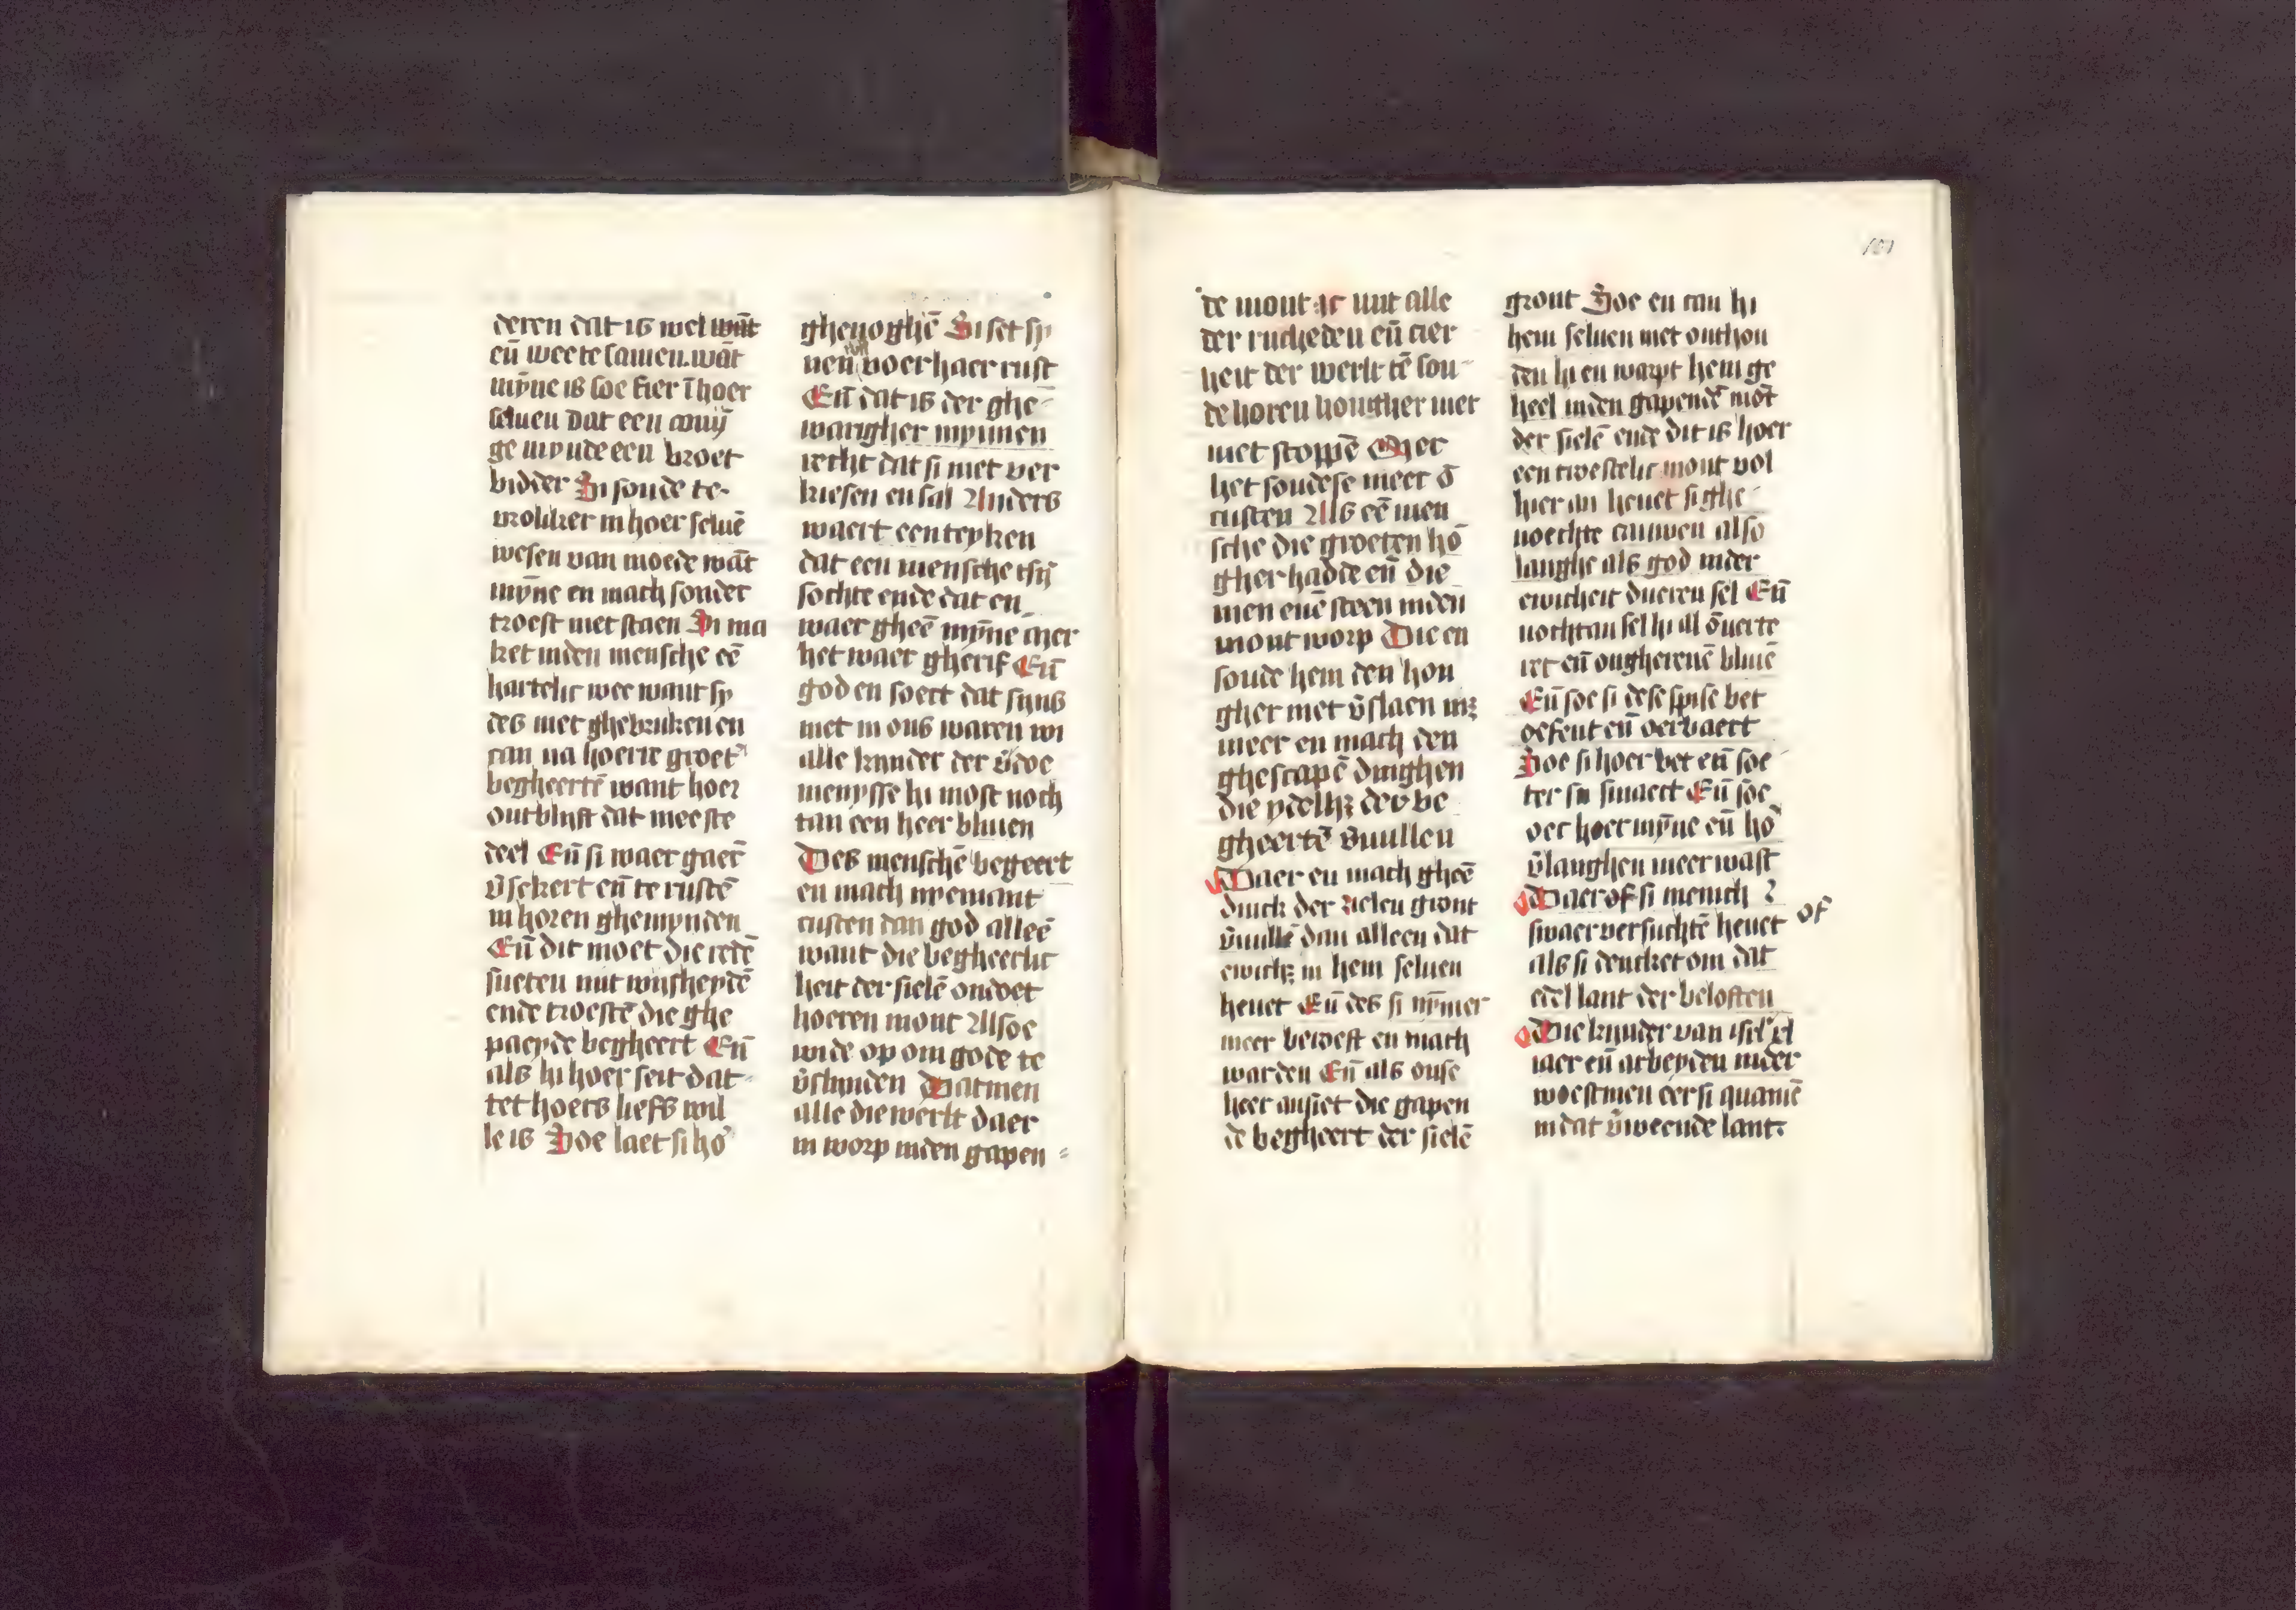 deren dat is wel want
eñ wee te samen. wāt
mȳne is soe fier ī hoer
seluen dat een conīj
ge mynde een broet
bidder Hi soude te-
vrolikĕr in hoer seluē
wesen van moede wāt
mȳne en mach sonder
troest niet staen Si ma
ket inden mensche eē
hartelic wee want sy
des niet ghebruken en
can na hoerre groet
begheertē want hoer
ontblijft dat meeste
deel Eñ si waer gaer̄
v̄sekert eñ te rustē
in horen ghemynden
Eñ dit moet die redē
sueten mit wijsheydē
ende troestē die ghe
paeyde begheert Eñ
als hi hoer seit dat-
tet hoers liefs wil
le is Soe laet si ho
ghenoghē Si set sy
nen voer haer rust
Eñ dat is der ghe-
warigher mynnen
recht dat si niet ver
kiesen en sal Anders
waert een teyken
dat een mensche tsȳ
sochte ende dat en
waer gheē mȳne mer
het waer gherif Eñ
god en soect dat syns
niet in ons waren wi
alle kynder der v̄doe
menysse hi most noch
tan een heer bliuen
Des menschē begeert
en mach nyemant
custen dan god alleē
want die begheerlic
heit der sielē ondoet
hoeren mont Alsoe
wide op om gode te
v̄slinden Datmen
alle die werlt daer
in worp inden gapen=
de mont ic mit alle
der rucheden eñ cier
heit der werlt tē sou-
de horen hongher niet
niet stoppē Mer
het soudese meer ō
custen Als eē men
sche die groeten hō
gher hadde eñ die
men enē steen inden
mont worp Die en
soude hem den hon
gher niet v̄slaen nz
meer en mach den
ghescapē dinghen
die ydelhz der be
gheertē v̄uullen
Daer en mach gheē
dinck der zielen gront
v̄uullē dan alleen dat
ewichz in hem seluen
heuet Eñ des si nȳmer
meer beroeft en mach
warden Eñ als onse
heer ansiet die gapen
de begheert der sielē
101
gront Soe en can hi
hem seluen niet onthou
den hi en warpt hem ge
heel inden gapendē mōt
der sielē ende dit is hoer
een troestelic mont vol
hier an heuet si ghe-
noechte cauwen also
langhe als god inder
ewicheit dueren sel Eñ
nochtan sel hi al ōuerte
ret eñ ongheteuē bliuē
Eñ soe si dese spise bet
oefent eñ oerbaert
Soe si hoer bet eñ soe
ter sm smaect Eñ soe
oec hoer mȳne eñ hō
v̄langhen meer wast
Daer of si menich
swaer versuchtē heuet of
als si dencket om dat
edel lant der beloften
Die kynder van isrl xl
iaer eñ arbeyden inder
woestinen eer si quamē
in dat v̄weende lant.